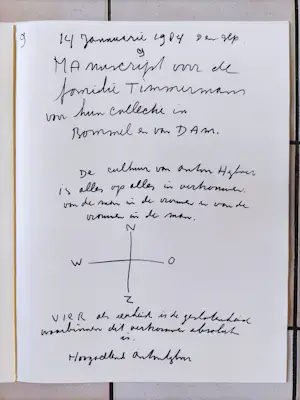 9
14 Januarie 1984 den Ilp.
9
MANuscript voor de
familie Timmermans
voor hun collectie in
Bommel en van DAm.
De cultuur van Anton Heyboer
is alles op alles in vertrouwen
van de man in de vrouw en van de
vrouw in de man.
N
W O
Z
VIER als eenheid is de geslotenheid
waarbinnen dit vertrouwen absoluut
is.
Hoogachtend Anton Heyboer